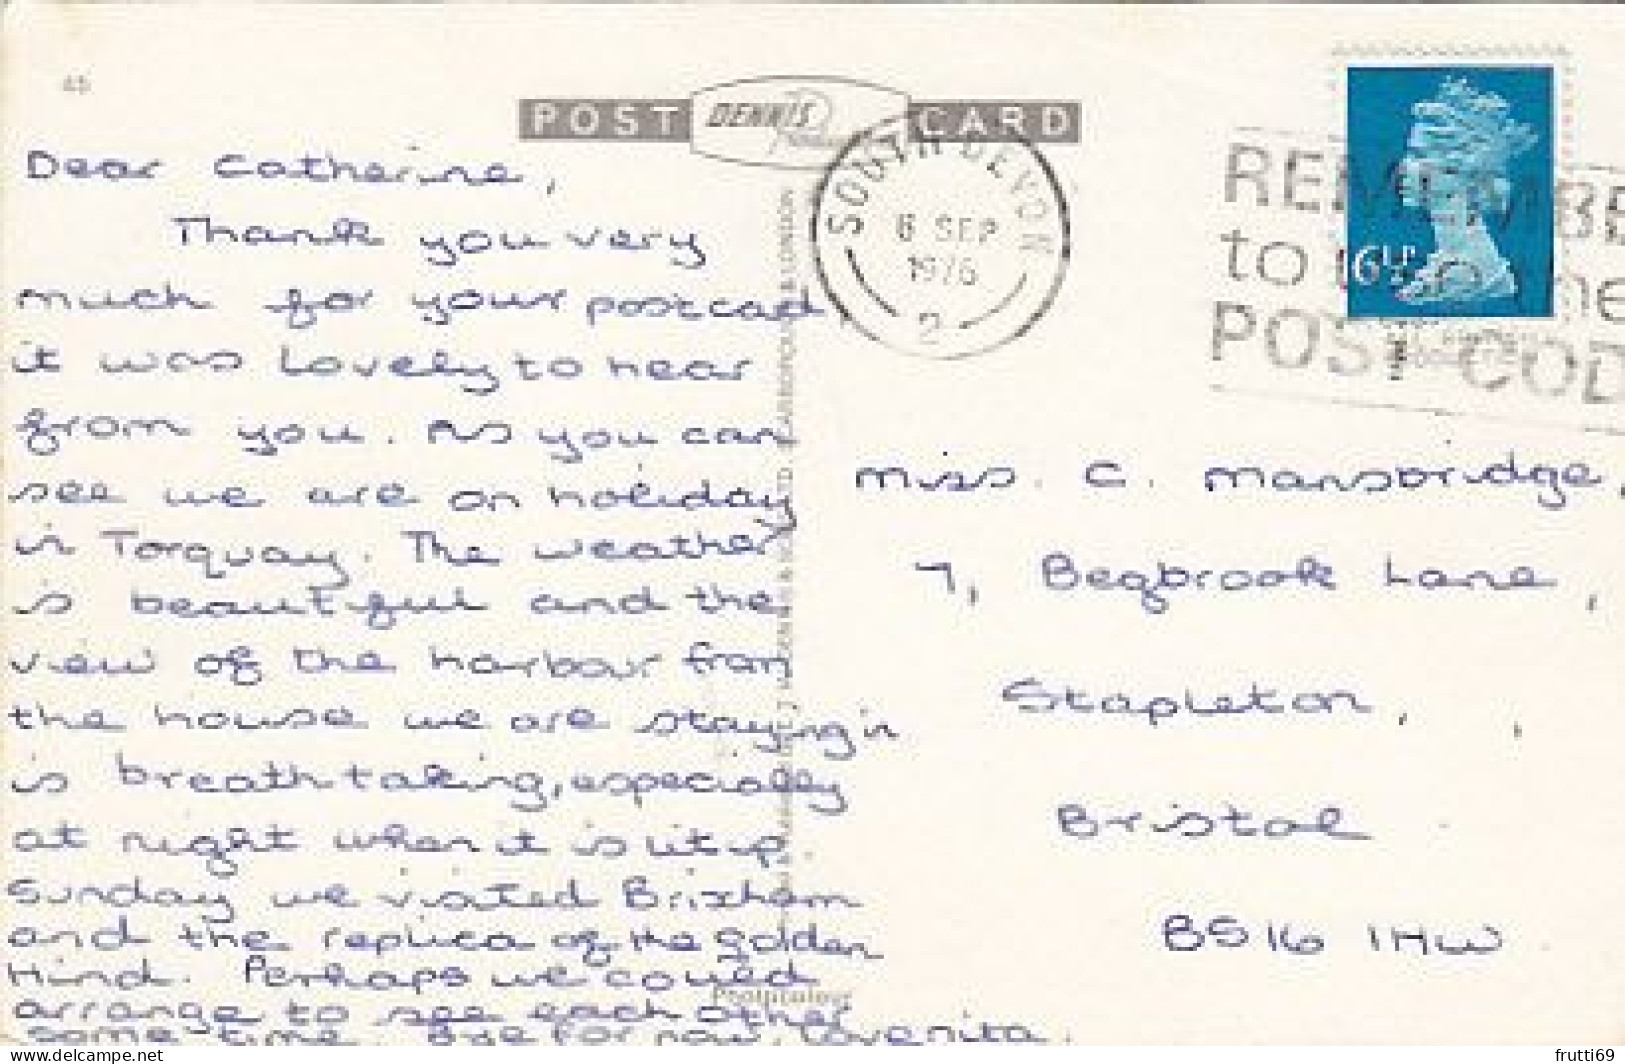 45
POST DENNIS CARD
SOUTH DEVON
6 SEP
1976
2
REMEMBE
to use the
POST COD
6½P
Dear Catherine,
Thank you very
much for your postcad,
it was lovely to hear
from you. As you can
see we are on holiday
in Torquay. The weather
is beautiful and the
view of the harbour from
the house we are staying in
is breathtaking, especially
at night when it is lit up.
Sunday we visited Brixham
and the replica of the Golden
Hind. Perhaps we coued
arrange to see each other
some time. Bye for now, Love nita.
Miss. C. Mansbridge,
7, Begbrook Lane,
Stapleton,
Bristol
BS16 1HW.
Photocolour
frutti69